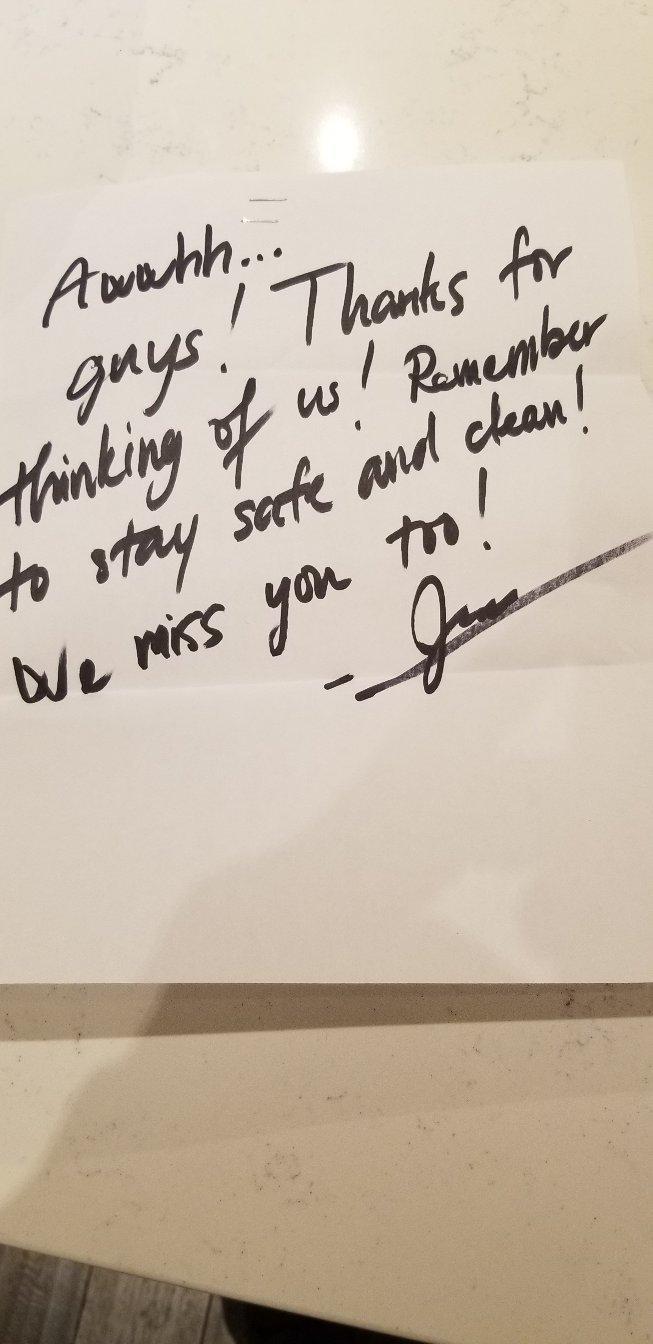 Awwwhh...
guys! Thanks for
thinking of us! Remember
to stay safe and clean!
We miss you too!
-